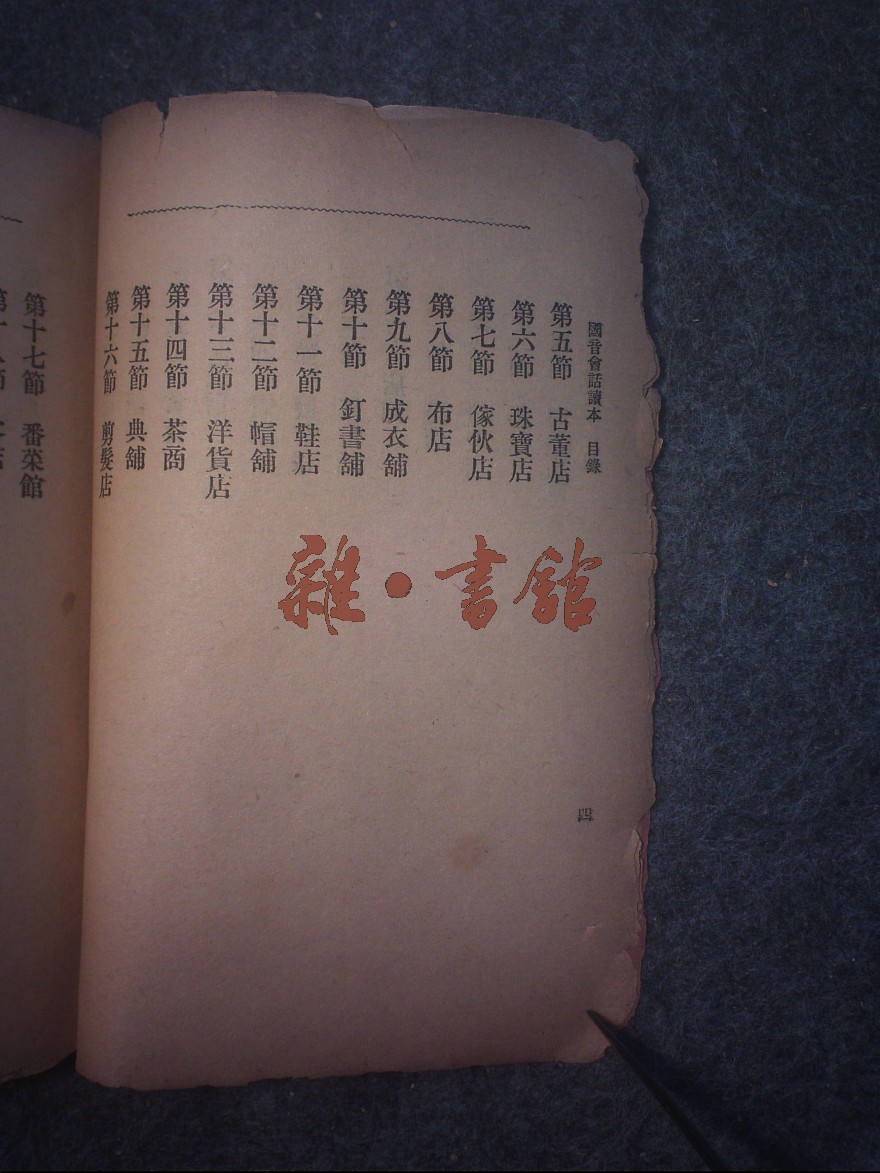 國音會話讀本　目錄
四
第五節　古董店
第六節　珠寶店
第七節　傢伙店
第八節　布店
第九節　成衣舖
第十節　釘書舖
第十一節　鞋店
第十二節　帽舖
第十三節　洋貨店
第十四節　茶商
第十五節　典舖
第十六節　剪髮店
第十七節　番菜館
雜·書館